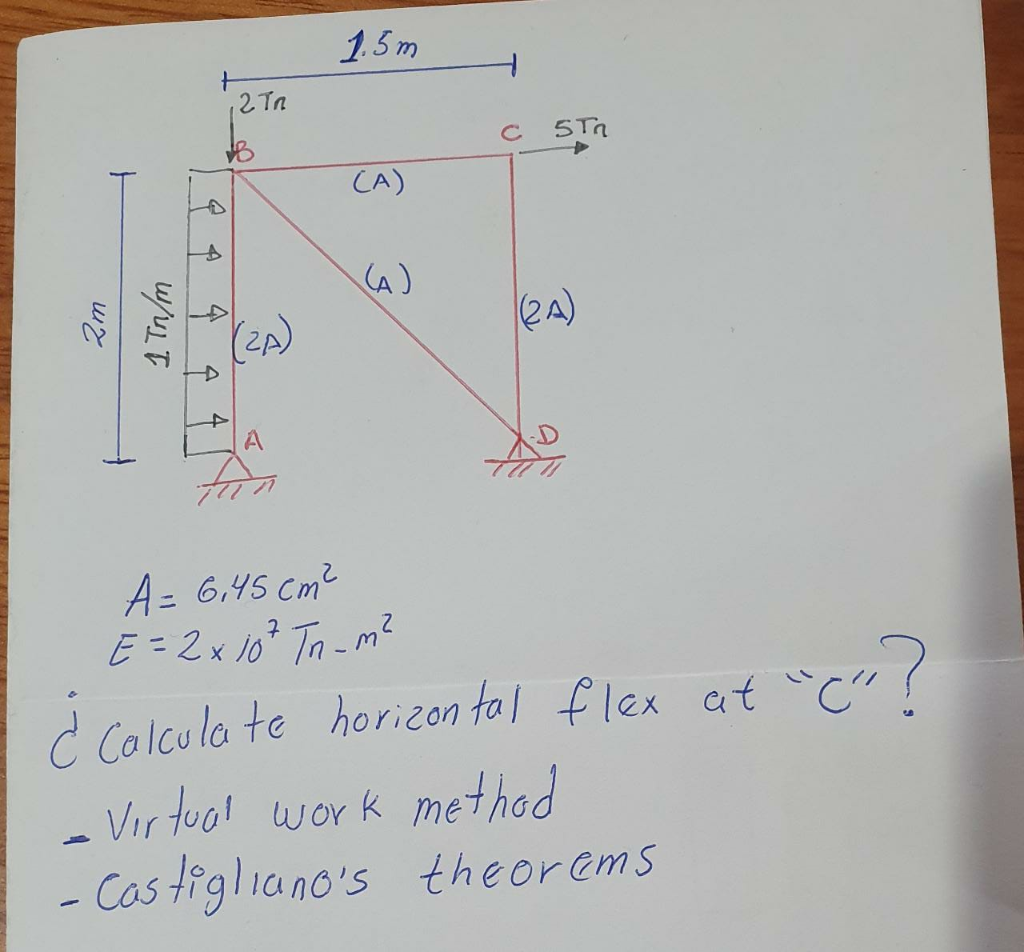 1.5m
2Tn
B
C
5Tn
(A)
(A)
2m
1 Tn/m
(2A)
(2A)
A
D
A = 6,45 cm²
E = 2 x 10⁷ Tn - m²
¿ Calculate horizontal flex at "C" ?
- Virtual work method
- Castigliano's theorems